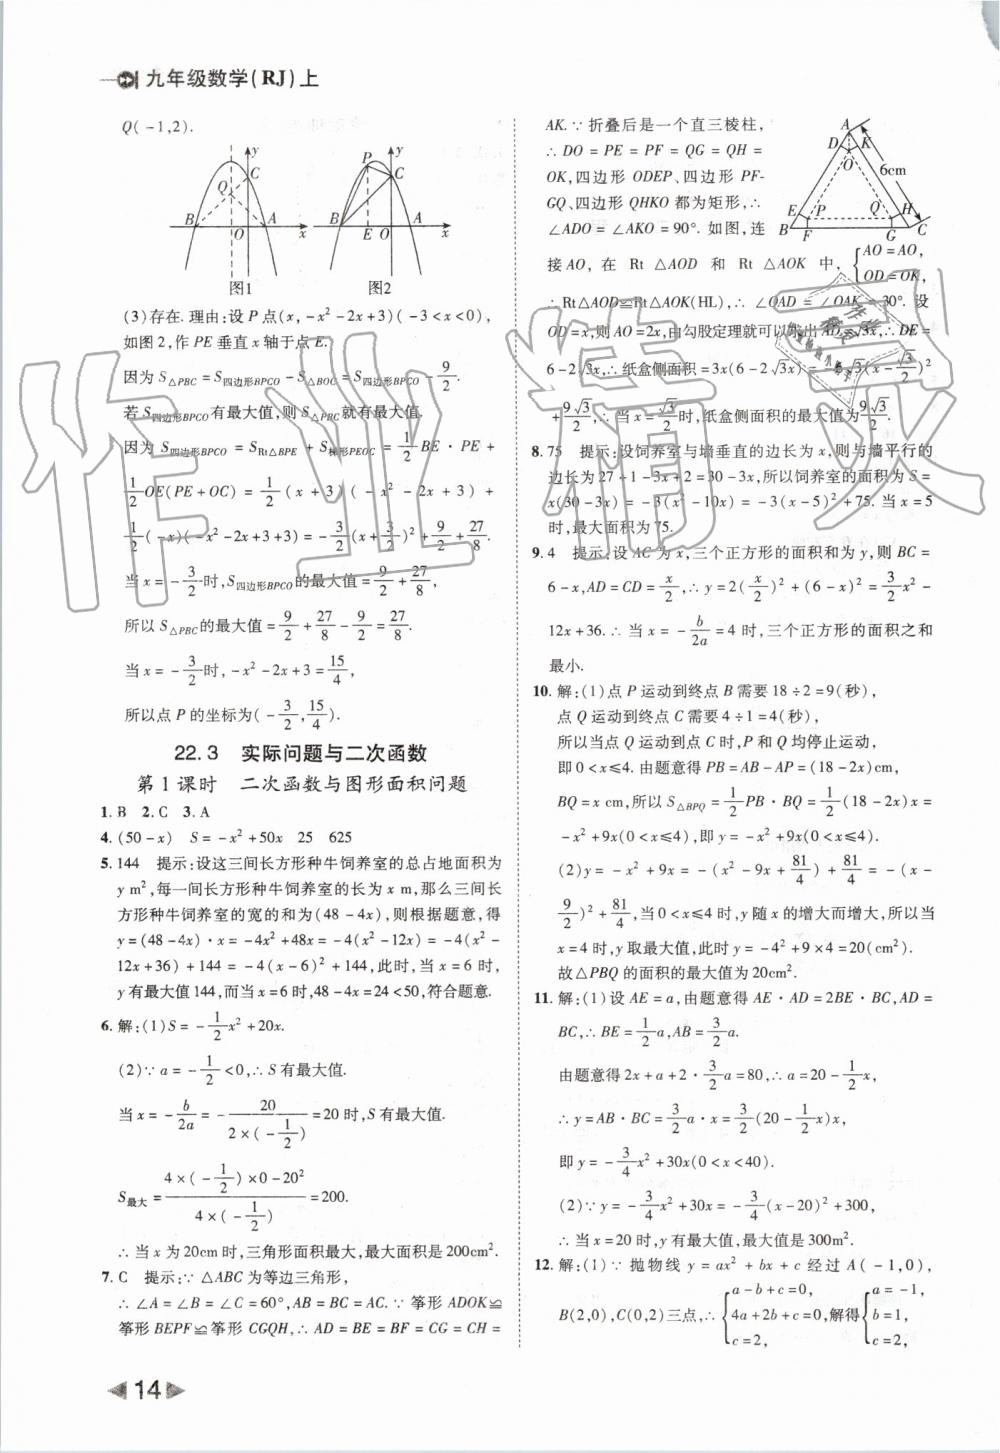 九年级数学(RJ)上
Q(-1,2).
y
C
Q
B
O
A
x
图1
y
P
C
B
E
O
A
x
图2
(3)存在. 理由:设P点(x,-x²-2x+3)(-3<x<0),
如图2,作PE垂直x轴于点E.
因为S△PBC=S四边形BPCO-S△BOC=S四边形BPCO-9/2.
若S四边形BPCO有最大值,则S△PBC就有最大值.
因为S四边形BPCO=SRt△BPE+S梯形PEOC=1/2BE·PE+
1/2OE(PE+OC)=1/2(x+3)(-x²-2x+3)+
1/2(-x)(-x²-2x+3+3)=-3/2(x+3/2)²+9/2+27/8.
当x=-3/2时,S四边形BPCO的最大值=9/2+27/8,
所以S△PBC的最大值=9/2+27/8-9/2=27/8.
当x=-3/2时,-x²-2x+3=15/4,
所以点P的坐标为(-3/2,15/4).
22.3 实际问题与二次函数
第1课时 二次函数与图形面积问题
1. B 2. C 3. A
4. (50-x) S=-x²+50x 25 625
5. 144 提示:设这三间长方形种牛饲养室的总占地面积为
y m²,每一间长方形种牛饲养室的长为x m,那么三间长
方形种牛饲养室的宽的和为(48-4x),则根据题意,得
y=(48-4x)·x=-4x²+48x=-4(x²-12x)=-4(x²-
12x+36)+144=-4(x-6)²+144,此时,当x=6时,
y有最大值144,而当x=6时,48-4x=24<50,符合题意.
6. 解:(1)S=-1/2x²+20x.
(2)∵a=-1/2<0,∴S有最大值.
当x=-b/2a=-20/(2×(-1/2))=20时,S有最大值.
S最大=(4×(-1/2)×0-20²)/(4×(-1/2))=200.
∴当x为20cm时,三角形面积最大,最大面积是200cm².
7. C 提示:∵△ABC为等边三角形,
∴∠A=∠B=∠C=60°,AB=BC=AC.∵筝形ADOK≌
筝形BEPF≌筝形CGQH,∴AD=BE=BF=CG=CH=
14
AK.∵折叠后是一个直三棱柱,
∴DO=PE=PF=QG=QH=
OK,四边形ODEP、四边形PF-
GQ、四边形QHKO都为矩形,∴
∠ADO=∠AKO=90°. 如图,连
A
D
K
O
6cm
E
P
Q
H
B
F
G
C
接AO,在Rt△AOD和Rt△AOK中,{AO=AO,
OD=OK,
∴Rt△AOD≌Rt△AOK(HL),∴∠OAD=∠OAK=30°. 设
OD=x,则AO=2x,由勾股定理就可以求出AD=√3x,∴DE=
6-2√3x,∴纸盒侧面积=3x(6-2√3x)=-6√3(x-√3/2)²
+9√3/2,∴当x=√3/2时,纸盒侧面积的最大值为9√3/2.
8. 75 提示:设饲养室与墙垂直的边长为x,则与墙平行的
边长为27+1-3x+2=30-3x,所以饲养室的面积为S=
x(30-3x)=-3(x²-10x)=-3(x-5)²+75. 当x=5
时,最大面积为75.
9. 4 提示:设AC为x,三个正方形的面积和为y,则BC=
6-x,AD=CD=x/2,∴y=2(x/2)²+(6-x)²=3/2x²-
12x+36.∴当x=-b/2a=4时,三个正方形的面积之和
最小.
10. 解:(1)点P运动到终点B需要18÷2=9(秒),
点Q运动到终点C需要4÷1=4(秒),
所以当点Q运动到终点C时,P和Q均停止运动,
即0<x≤4. 由题意得PB=AB-AP=(18-2x)cm,
BQ=x cm,所以S△BPQ=1/2PB·BQ=1/2(18-2x)x=
-x²+9x(0<x≤4),即y=-x²+9x(0<x≤4).
(2)y=-x²+9x=-(x²-9x+81/4)+81/4=-(x-
9/2)²+81/4,当0<x≤4时,y随x的增大而增大,所以当
x=4时,y取最大值,此时y=-4²+9×4=20(cm²).
故△PBQ的面积的最大值为20cm².
11. 解:(1)设AE=a,由题意得AE·AD=2BE·BC,AD=
BC,∴BE=1/2a,AB=3/2a.
由题意得2x+a+2·3/2a=80,∴a=20-1/2x,
∴y=AB·BC=3/2a·x=3/2(20-1/2x)x,
即y=-3/4x²+30x(0<x<40).
(2)∵y=-3/4x²+30x=-3/4(x-20)²+300,
∴当x=20时,y有最大值,最大值是300m².
12. 解:(1)∵抛物线y=ax²+bx+c经过A(-1,0),
B(2,0),C(0,2)三点,∴{a-b+c=0, 4a+2b+c=0, c=2, 解得{a=-1, b=1, c=2,
作业精灵